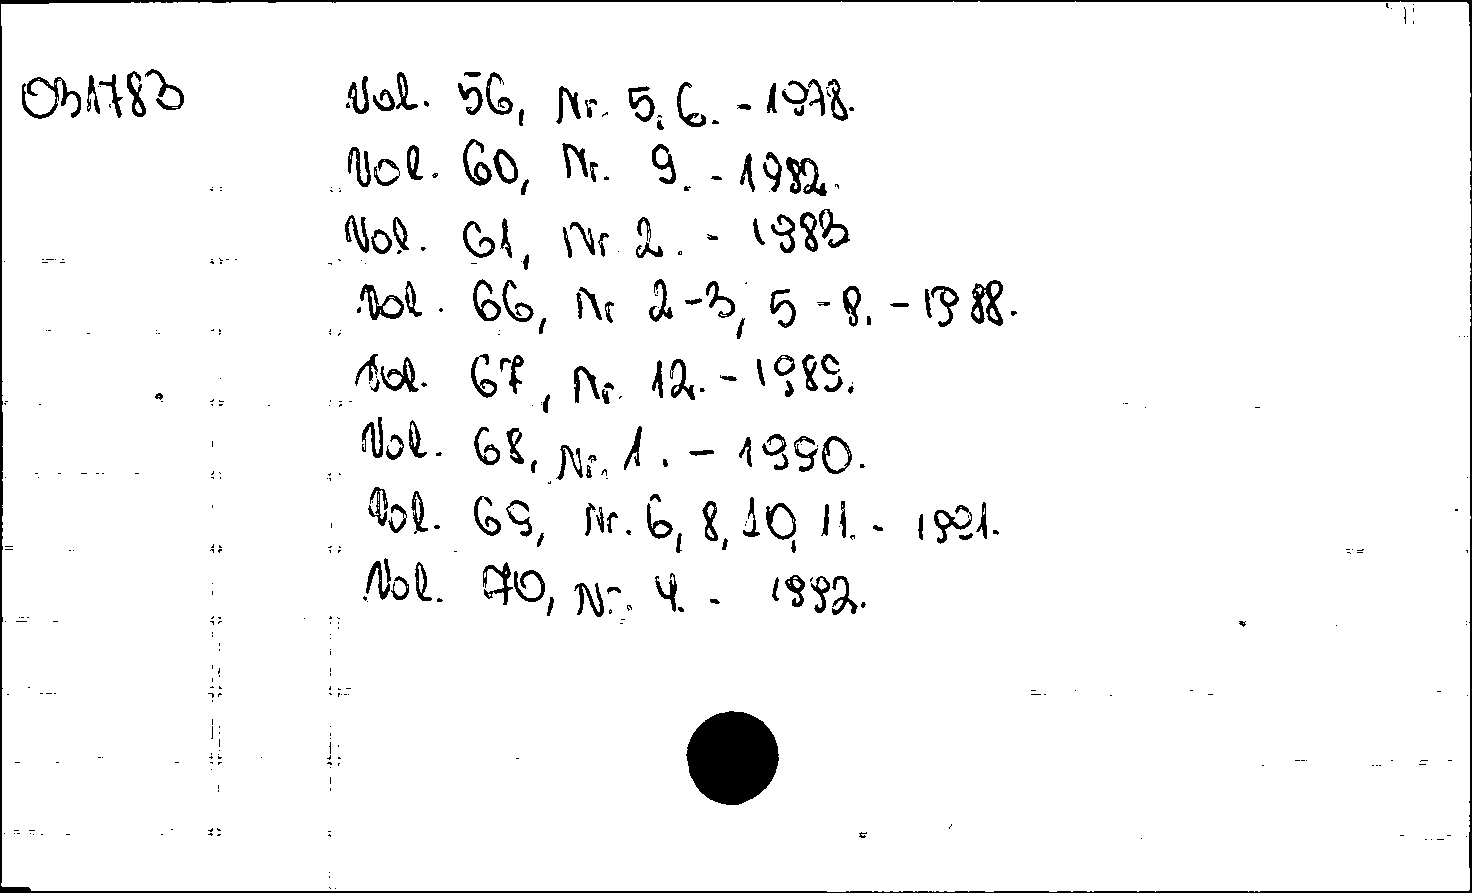 031783 Vol. 56, Nr. 5, 6. - 1978.
Vol. 60, Nr. 9. - 1982.
Vol. 61, Nr 2. - 1983
Vol. 66, Nr 2-3, 5-8. - 1988.
Vol. 67, Nr. 12. - 1989.
Vol. 68, Nr. 1. - 1990.
Vol. 69, Nr. 6, 8, 10, 11. - 1991.
Vol. 70, Nr. 4. - 1992.